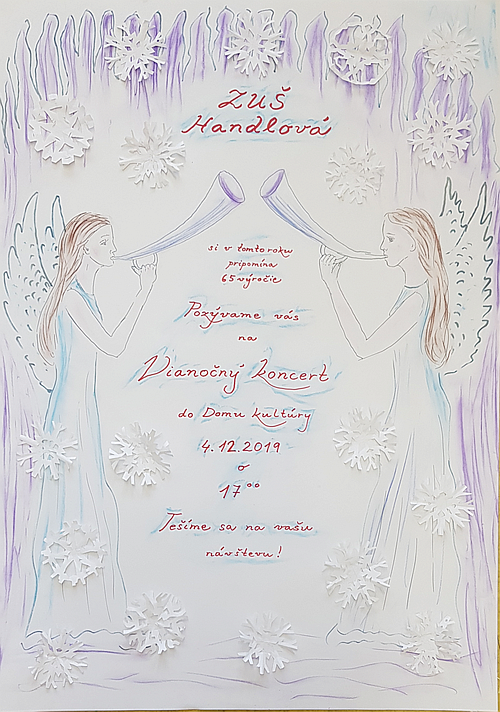 ZUŠ
Handlová
si v tomto roku
pripomína
65 výročie
Pozývame vás
na
Vianočný koncert
do Domu kultúry
4.12.2019
o
17⁰⁰
Tešíme sa na vašu
návštevu!